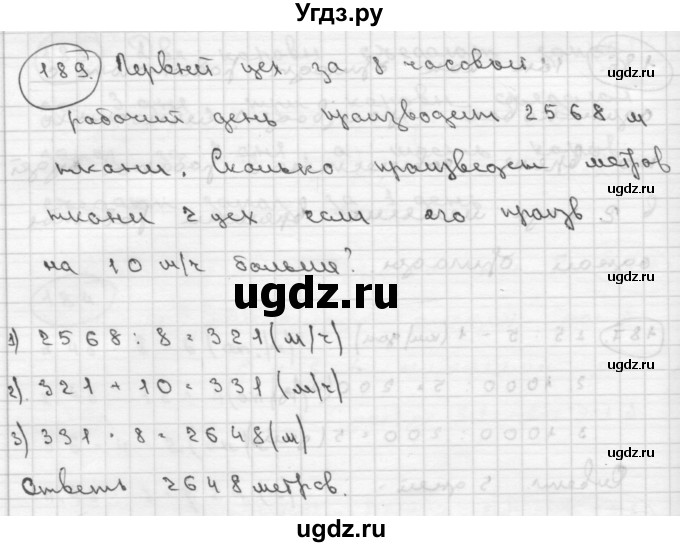 Угдз.ру
189. Первый цех за 8 часовый
рабочий день производит 2568 м
ткани. Сколько произведет метров
ткани 2 цех если его произв.
на 10 м/ч больше?
1) 2568 : 8 = 321 (м/ч)
2) 321 + 10 = 331 (м/ч)
3) 331 · 8 = 2648 (м)
Ответь 2648 метров.
ugdz.ru
ugdz.ru
ugdz.ru
ugdz.ru
ugdz.ru
ugdz.ru
ugdz.ru
ugdz.ru